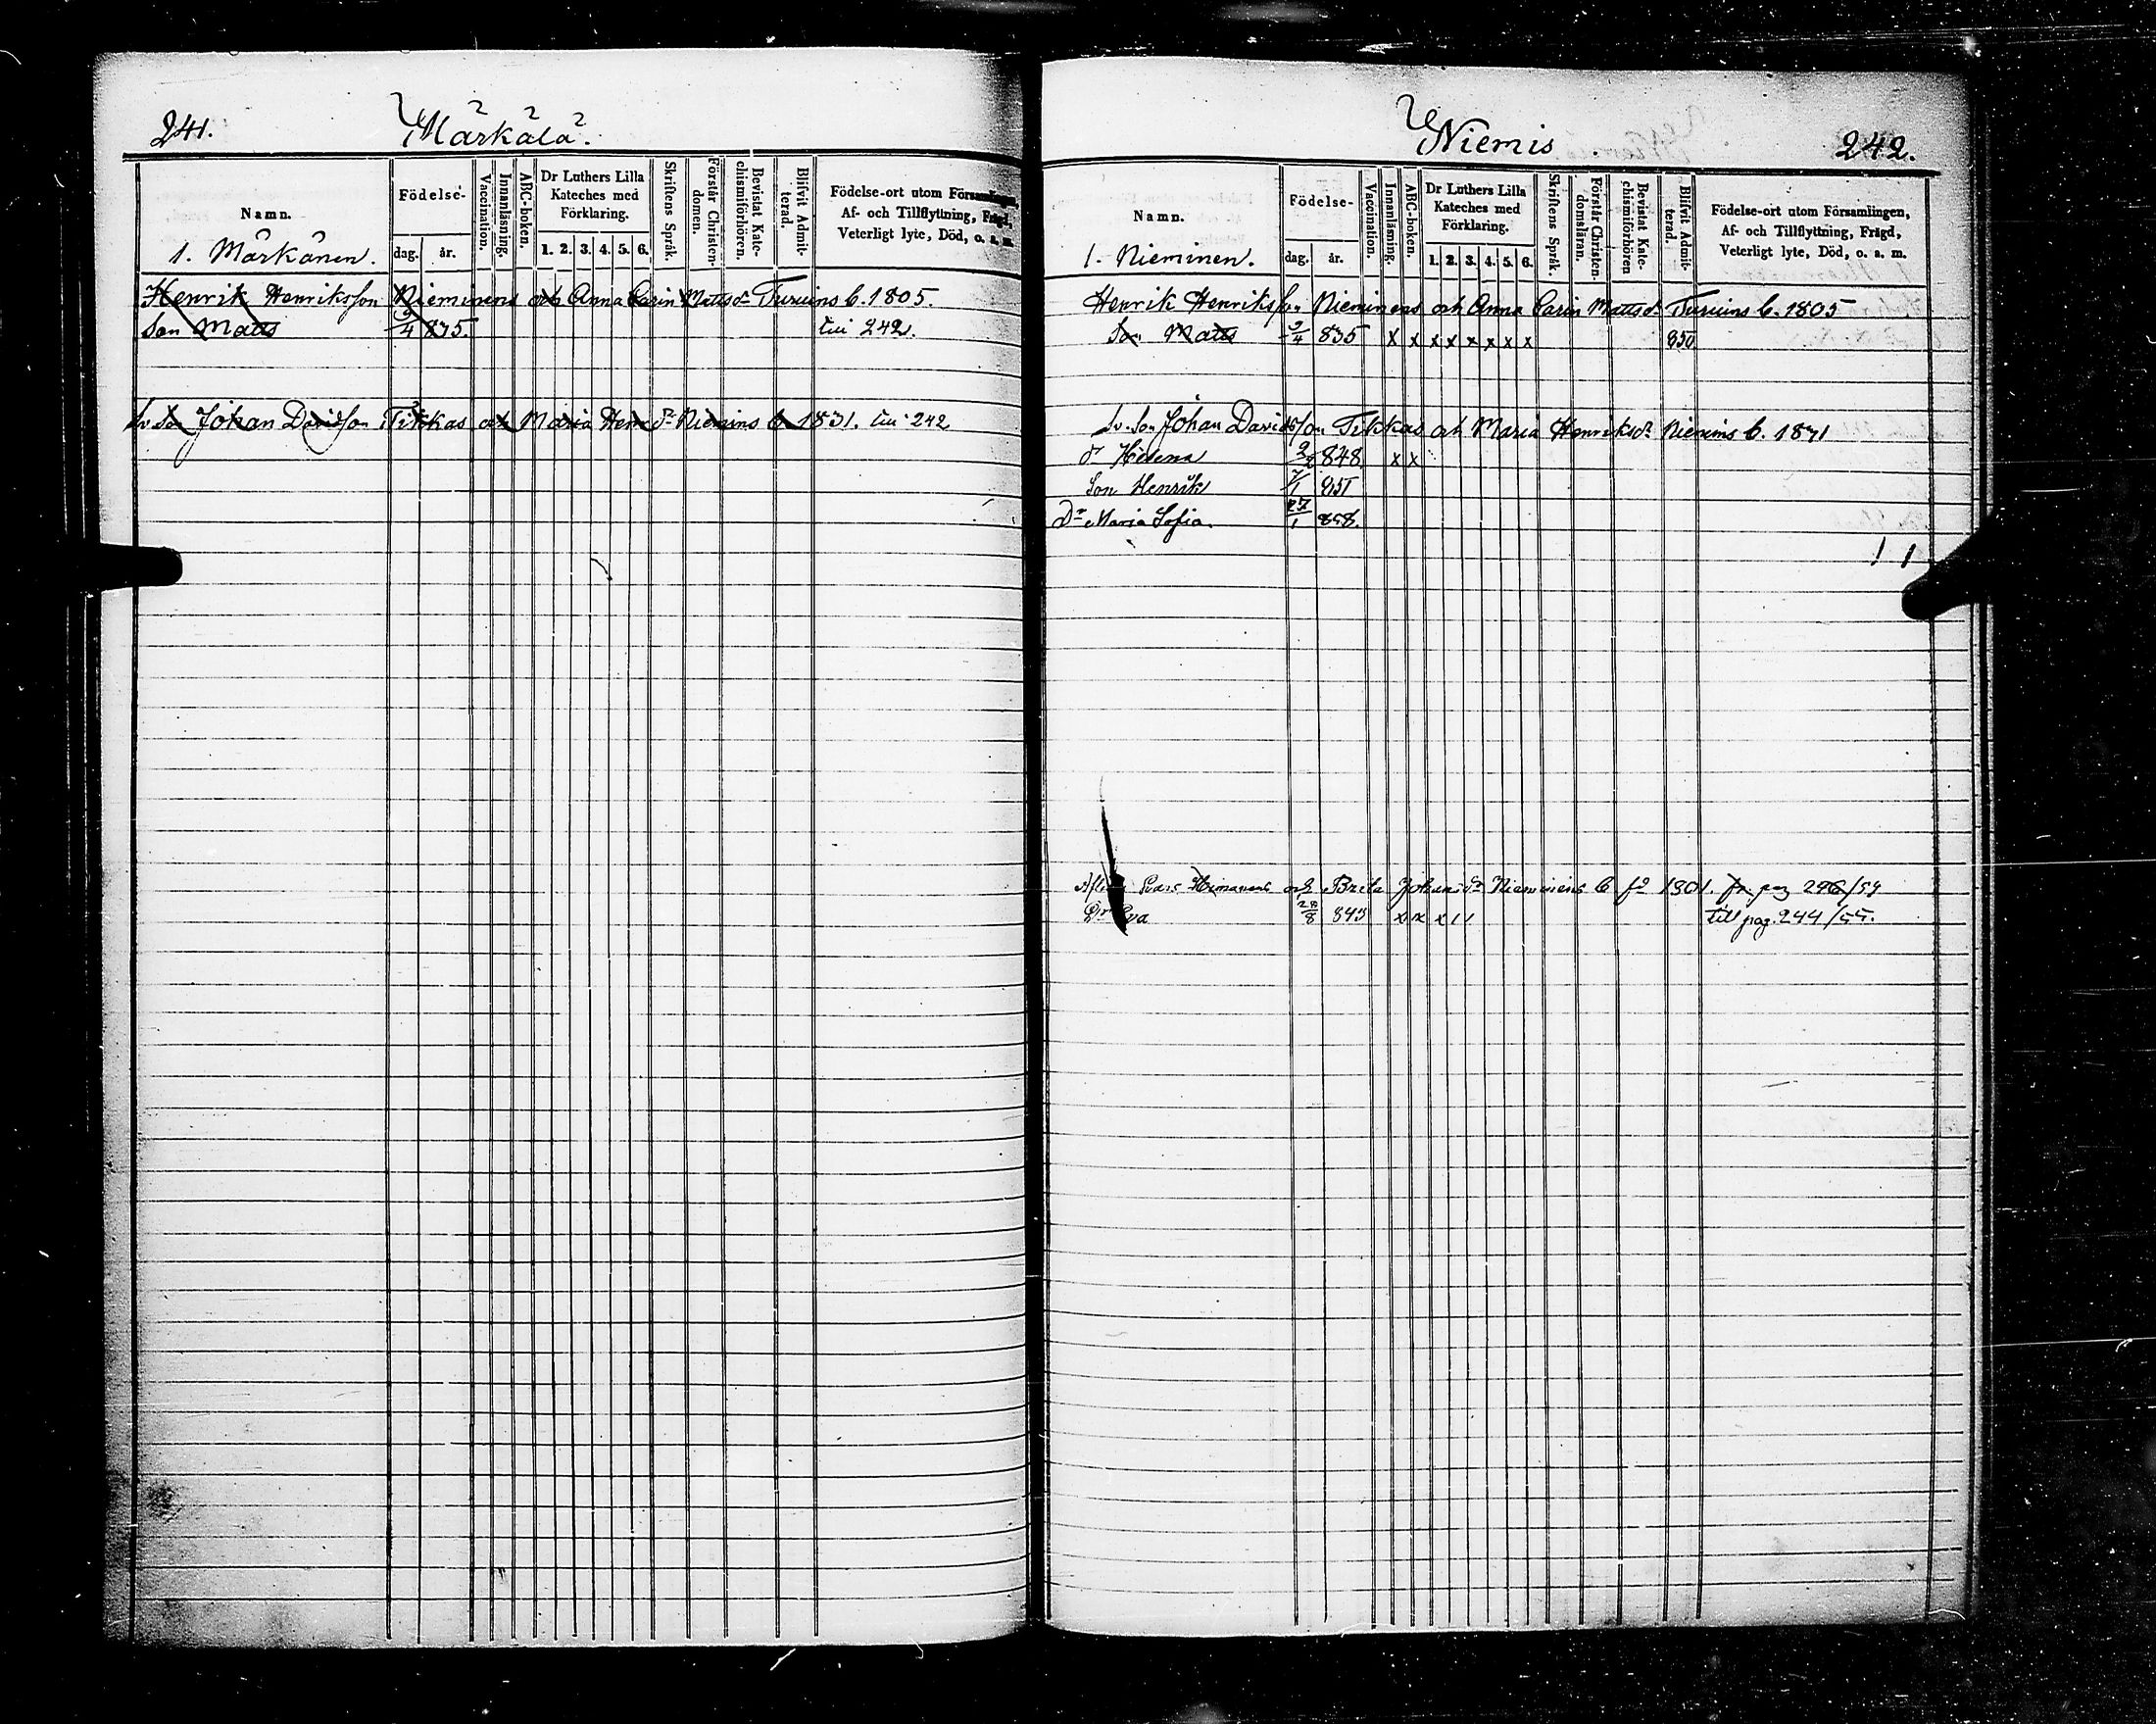 241. Märkälä.
Namn.
Födelse-
dag. år.
Vaccination.
Innanläsning.
ABC-boken.
Dr Luthers Lilla
Kateches med
Förklaring.
1. 2. 3. 4. 5. 6.
Skriftens Språk.
Förstår Christen-
domen.
Bevistat Kate-
chismiförhören.
Blifvit Admit-
terad.
Födelse-ort utom Församlingen,
Af- och Tillflyttning, Frägd,
Veterligt lyte, Död, o. a. m.
1. Märkänen.
Henrik Henriksson Nieminens och Anna Carin Mattsdr Turuins b. 1805.
Son Matts 2/4 835. till 242.
Sv. Son Johan Davidsson Tikkas och Maria Henrdr Niemins b. 1831. till 242
Niemis 242.
Namn.
Födelse-
dag. år.
Vaccination.
Innanläsning.
ABC-boken.
Dr Luthers Lilla
Kateches med
Förklaring.
1. 2. 3. 4. 5. 6.
Skriftens Språk.
Förstår Christen-
domsläran.
Bevistat Kate-
chismiförhören
Blifvit Admit-
terad.
Födelse-ort utom Församlingen,
Af- och Tillflyttning, Frägd,
Veterligt lyte, Död, o. a. m.
1. Nieminen.
Henrik Henriksson Nieminens och Anna Carin Mattsdr Turuins b. 1805
Son Matts 2/4 835 x x x x x x x x 850
Sv. Son Johan Davidsson Tikkas och Maria Henriksdr Niemins b. 1831
dr Helena 848 x x
Son Henrik 7/1 851
Dr Maria Sofia. 27/1 858.
1 1
Brita Johansdr Nieminens b fd 1801. fr. pag /54
Dr Eva 20/8 843 x x x 1 1 till pag. 244/55.